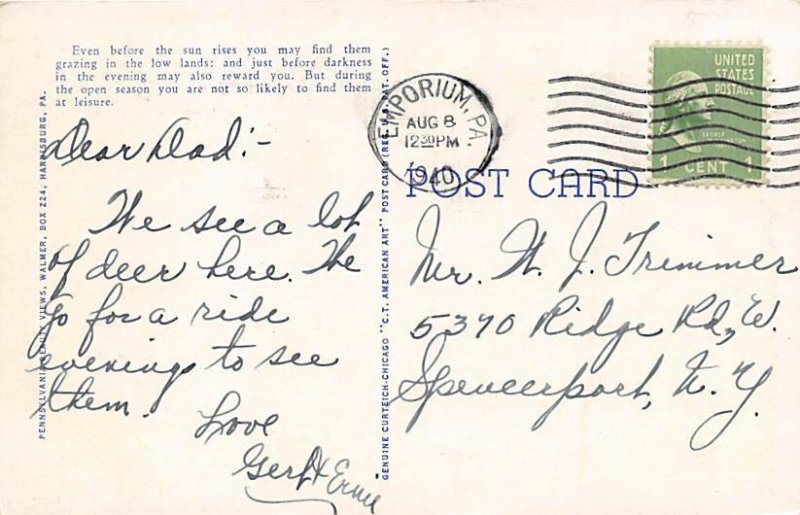 Even before the sun rises you may find them
grazing in the low lands: and just before darkness
in the evening may also reward you. But during
the open season you are not so likely to find them
at leisure.
PENNSYLVANIA BEAUTY VIEWS, WALMER, BOX 224, HARRISBURG, PA.
Dear Dad:-
We see a lot
of deer here. The
go for a ride
evenings to see
them.
Love
Gert & Ernie
GENUINE CURTEICH-CHICAGO "C.T. AMERICAN ART" POST CARD (REG. U.S. PAT. OFF.)
EMPORIUM, PA.
AUG 8
12 30 PM
1940
UNITED
STATES
POSTAGE
GEORGE
1 CENT 1
POST CARD
Mr. W. J. Trimmer
5370 Ridge Rd, W.
Spencerport, N.Y.